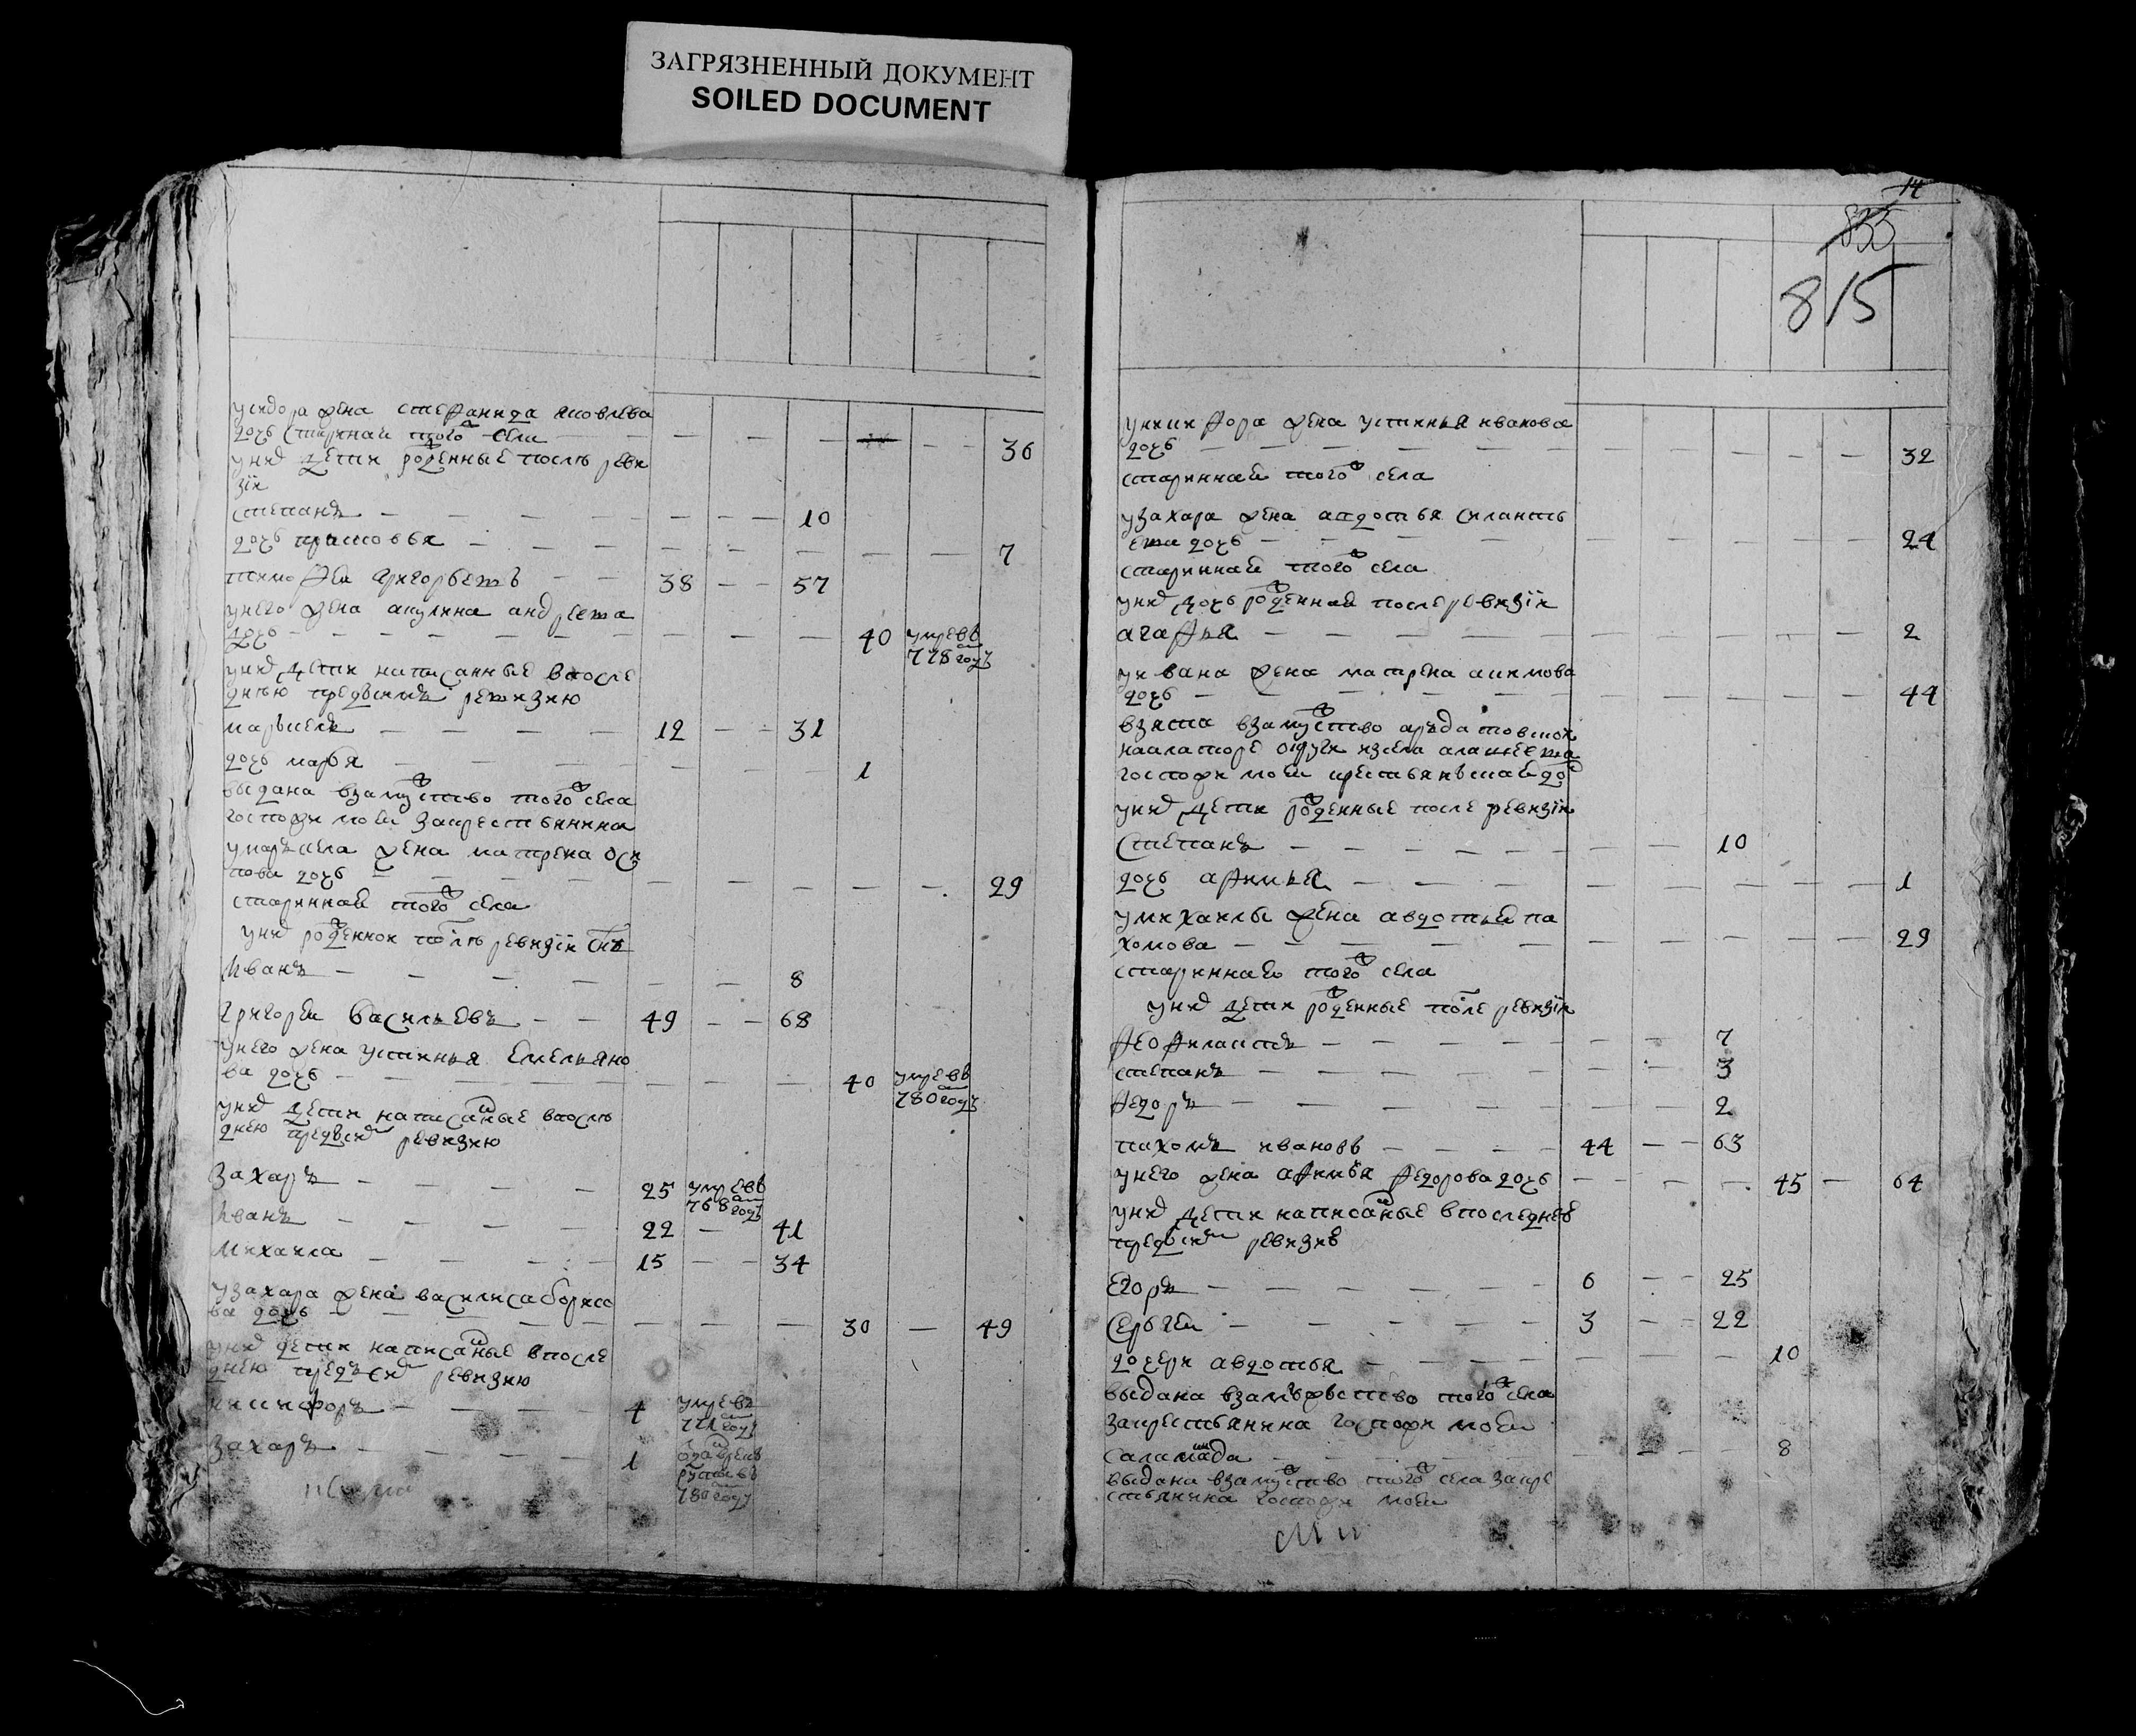 ЗАГРЯЗНЕННЫЙ ДОКУМЕНТ
SOILED DOCUMENT
жена Стефанида Яковлева
дочь старинная того села 36
у них дети рожденные после реви
зіи
Степанъ 10
дочь Прасковья 7
Тимофей Григорьевъ 38 57
у него жена Акулина Андреева
дочь 40 умре въ 778 году
у них дети написанные в после
днею пред сим ревизию
12 31
дочь Марья 1
выдана в замужство того села
госпожи моей за крестьянина
жена Матрена Оси
пова дочь 29
старинная того села
у них рожденной после ревизіи сынъ
Иванъ 8
Григорей Васильевъ 49 68
у него жена Устинья Емельяно
ва дочь 40 умре въ 780 году
у них дети написаные в после
днею пред сим ревизию
Захаръ 25 умре въ 768 году
Иванъ 22 41
Михаила 15 34
у Захара жена Василиса Борисо
ва дочь 30 49
у них дети написаные в после
днею пред сим ревизию
Никифоръ 4 умре въ году
Захаръ 1 780 году
14
835
815
у Никифора жена Устинья Иванова
дочь 32
старинная того села
у Захара жена Авдотья
дочь 24
старинная того села
у них дочь рожденная после ревизіи
Агафья 2
у Ивана жена Матрена Акимова
дочь 44
взята в замужство
госпожи моей крестьянская дочь
у них дети рожденные после ревизіи
Степанъ 10
дочь Афимья 1
у Михаилы жена Авдотья Па
хомова 29
старинная того села
у них дети рожденные после ревизіи
Феофилактъ 7
Степанъ 3
Федоръ 2
Пахомъ Ивановъ 44 63
у него жена Афимья Федорова дочь 45 64
у них дети написаные в последнею
пред сим ревизию
Егоръ 6 25
Сергей 3 22
дочери Авдотья 10
выдана в замужество того села
за крестьянина госпожи моей
8
выдана в замужство того села за кре
стьянина госпожи моей